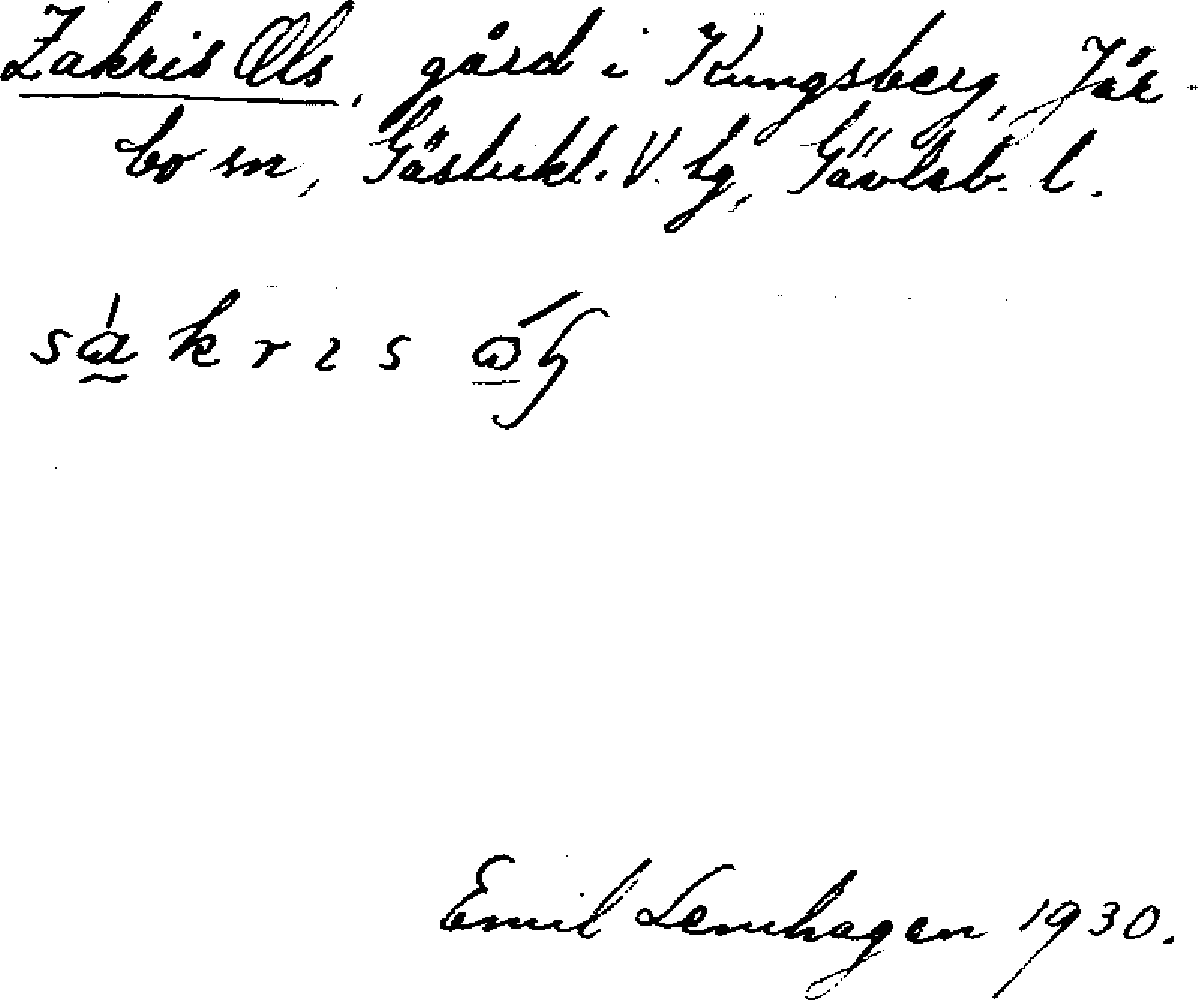 Zakris Ols, gård i Kungsberg, Jär-
bo sn, Gästrikl. V. hg, Gävleb. l.
Emil Lenhagen 1930.